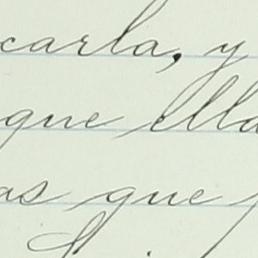 carla, y
que ella
as que